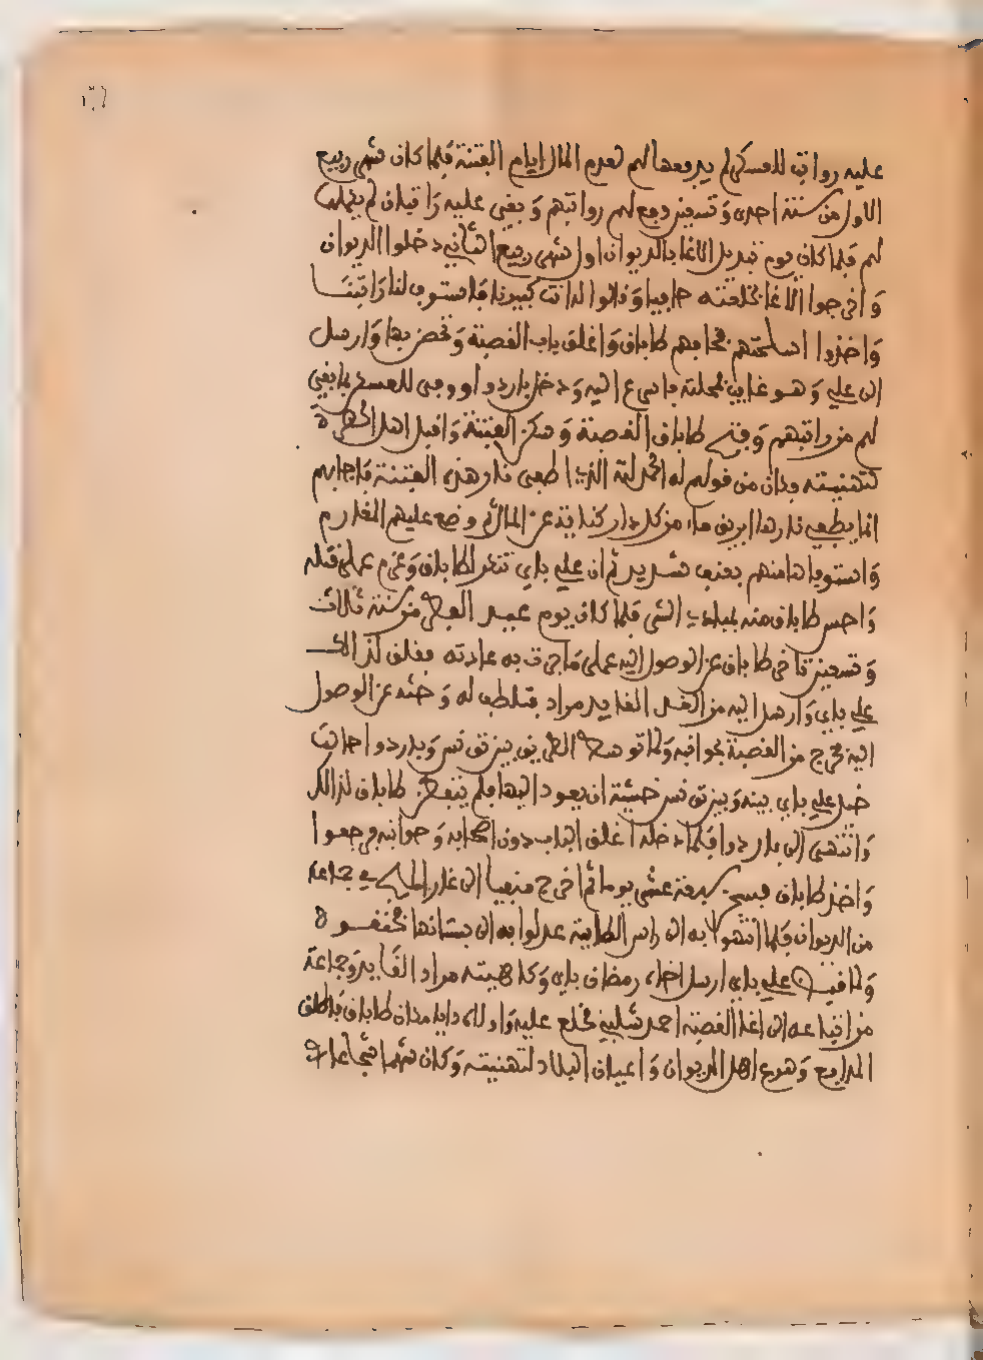 عليه رواتب للعسكر لم يدفعها لهم لعدم المال ايام الفتنة فلما كان شهر ربيع
الاول من سنة احدى وتسعين دفع لهم رواتبهم وبقي عليه راتبان لم يعطهما
لهم فلما كان يوم تبديل الاغا بالديوان اول شهر ربيع الثاني دخلوا الديوان
واخرجوا الاغا بخلعته حافيا وقالوا له انت كبيرنا فاستوف لنا راتبنا
واخذوا اسلحتهم فخافهم طاباق واغلق باب القصبة وتحصن بها وارسل
الى علي وهو غايب بمحلته فاسرع اليه ودخل باردو او وفى للعسكر بما بقي
لهم من راتبهم وفتح طاباق القصبة وسكن الفتنة واقبل اهل الحضرة
لتهنيته وكان من قولهم له الحمد لله الذي اطفى نار هذه الفتنة فاجابهم
انما يطفي نارها ابريق ماء من كل دار كناية عن المال ثم وضع عليهم المغارم
واستوفاها منهم بعنف شديد ثم ان علي باي تنكر لطاباق وعزم على قتله
واحس طاباق منه بمبادي الشر فلما كان يوم عيد الفطر من سنة ثلاث
وتسعين تاخر طاباق عن الوصول اليه على ما جرت به عادته فقلق لذالك
علي باي وارسل اليه من القايد مراد فتلطف له وحثه عن الوصول
اليه فخرج من القصبة بجوانبه ولما توسط الطريق بين تونس وباردو احالت
خيل علي باي بينه وبين تونس خشية ان يعود اليها فلم يتفطن طاباق لذالك
وانتهى الى باردو فلما دخله اغلق الباب دون اصحابه وحوانبه فرجعوا
واخذ طاباق فسجن بضعة عشر يوما ثم اخرج منفيا الى غار الملح في جماعة
من الديوان فلما انتهوا به الى راس الطابية عدلوا به الى بستانها فخنقوه
ولما علي باي ارسل اخاه رمضان باي وكاهيته مراد القايد وجماعة
من اتباعه الى اغا القصبة احمد شلبي فخلع عليه واولاه دايا مكان طاباق فاطلق
المدافع وهرع اهل الديوان واعيان البلاد لتهنيته وكان شهما شجاعا